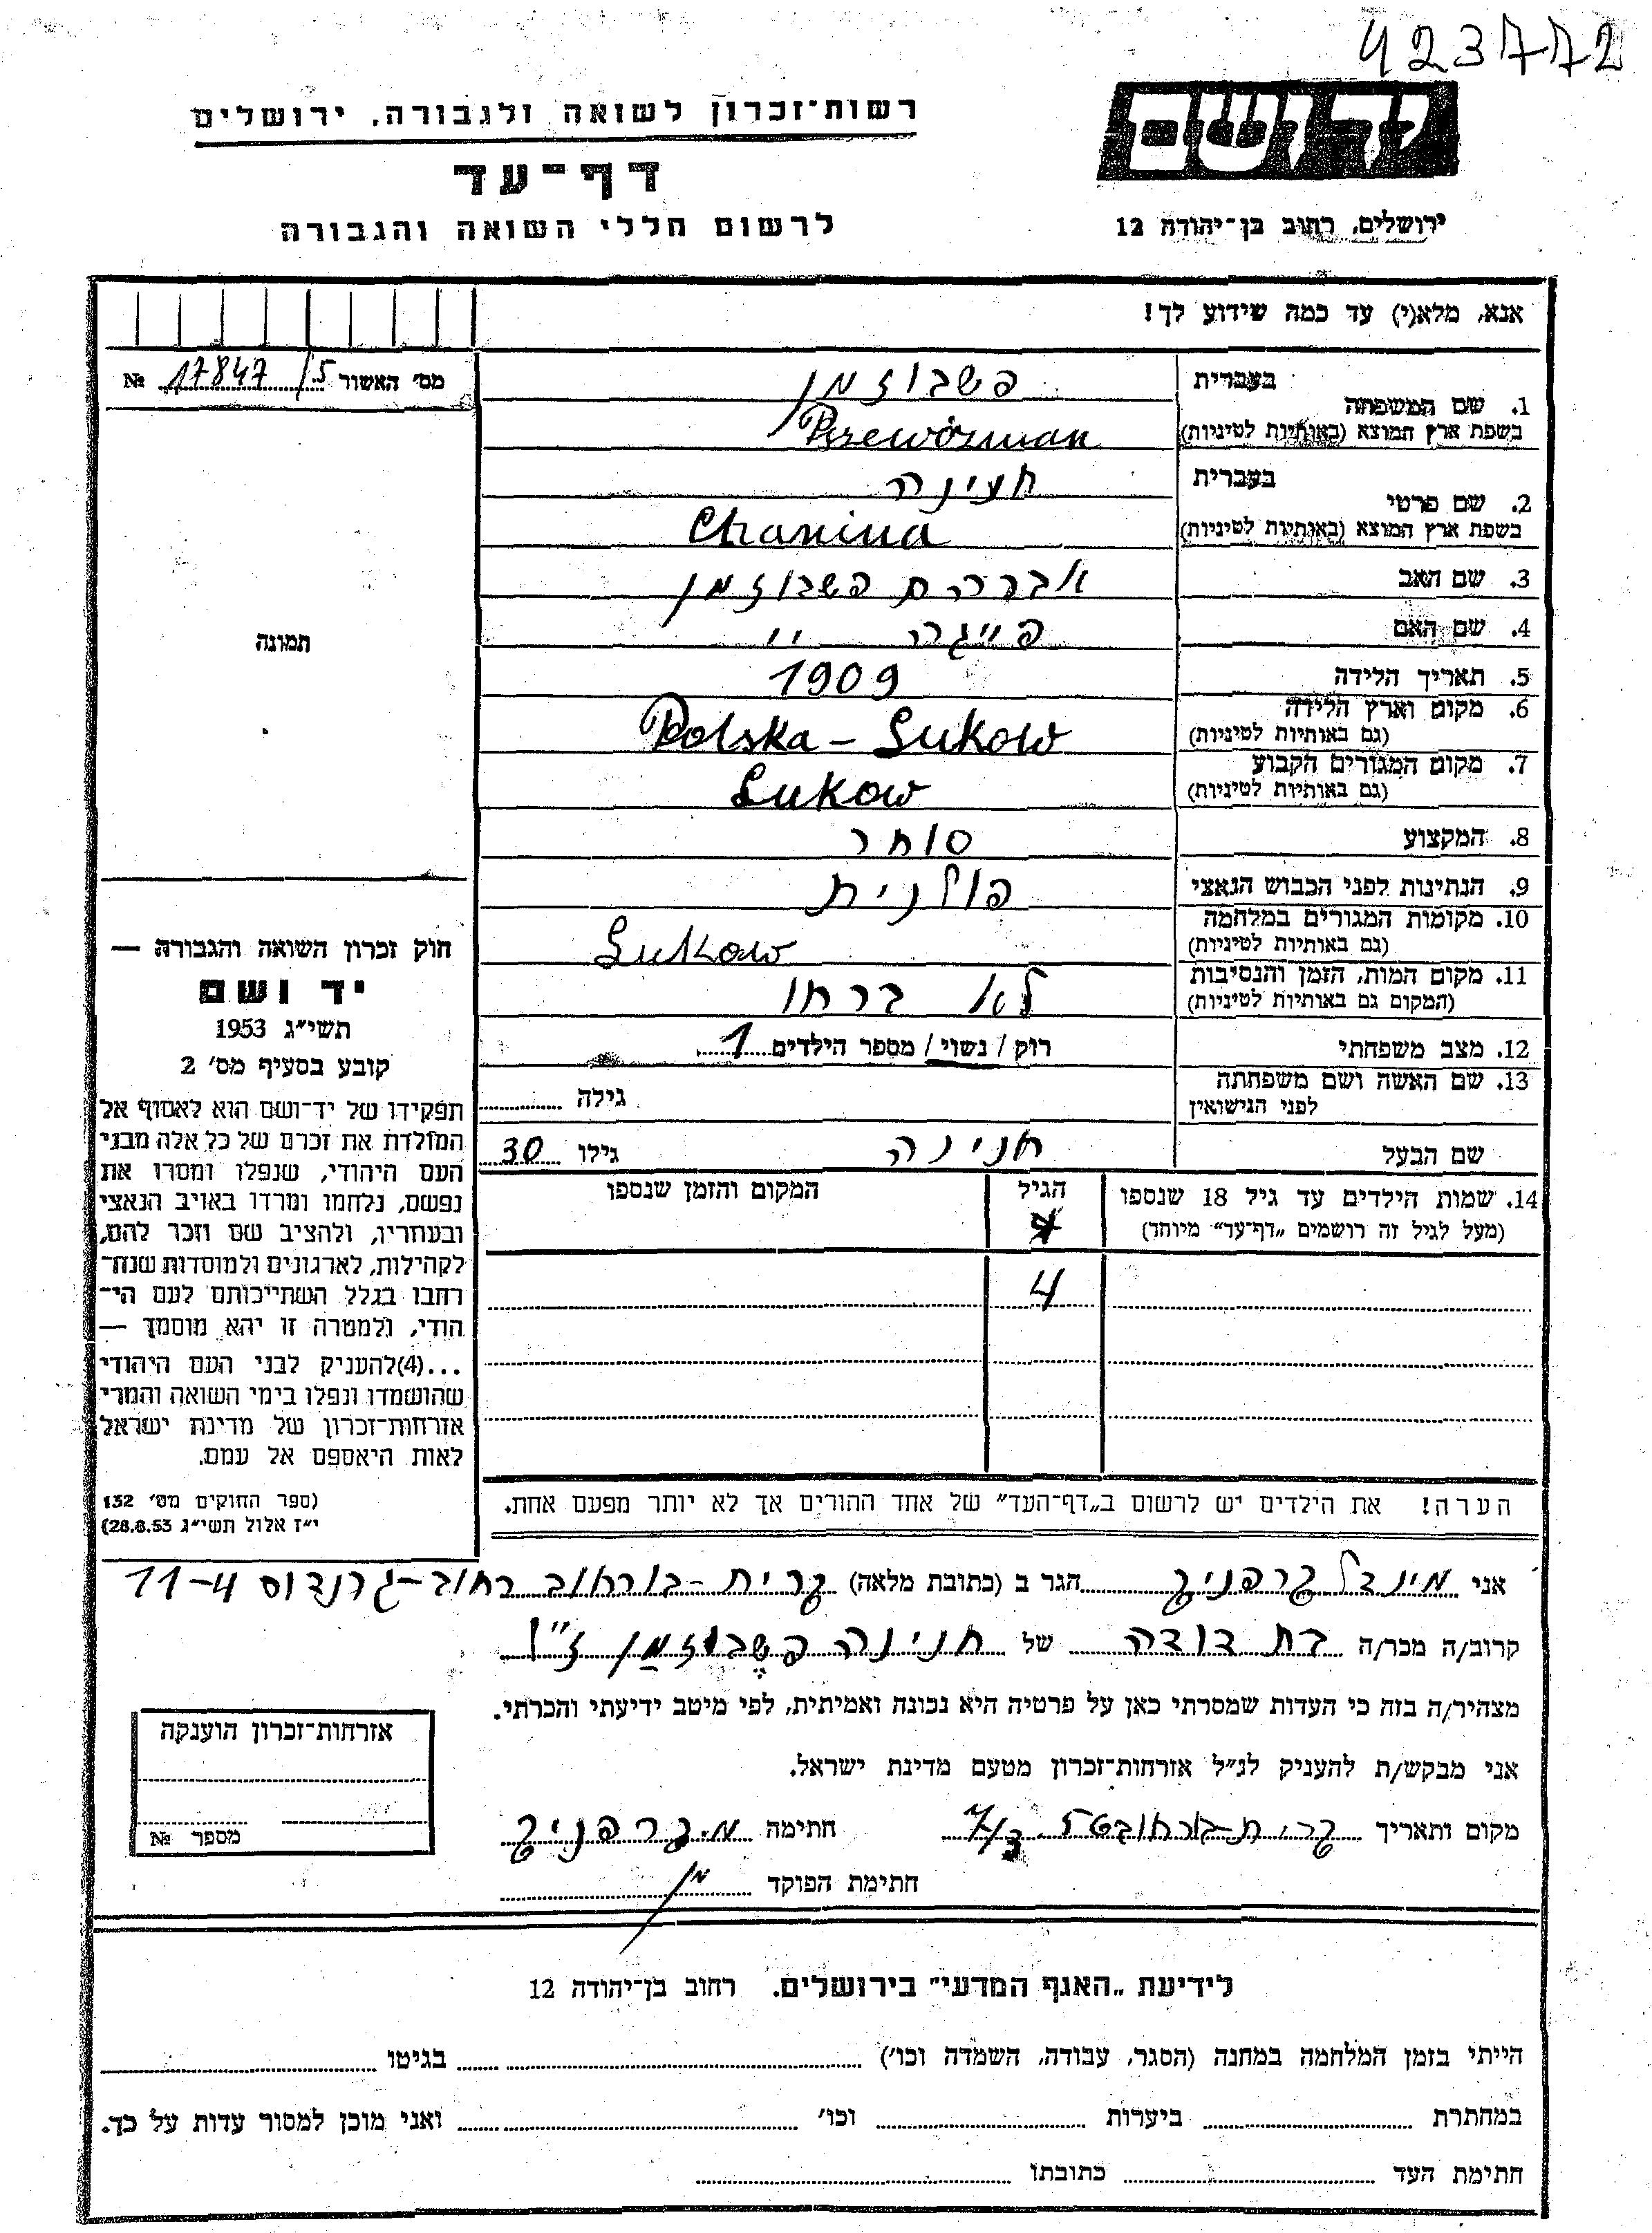 423772
רשות־זכרון לשואה ולגבורה, ירושלים
יד ושם
דף־עד
לרשום חללי השואה והגבורה
ירושלים, רחוב בן־יהודה 12
אנא, מלא(י) עד כמה שידוע לך!
מס׳ האשור 17847/5 №
תמונה
1. שם המשפחה
בעברית פשבוזמן
בשפת ארץ המוצא (באותיות לטיניות) Przewózman
2. שם פרטי
בעברית חנינה
בשפת ארץ המוצא (באותיות לטיניות) Chanina
3. שם האב אברהם פשבוזמן
4. שם האם פייגה ״
5. תאריך הלידה 1909
6. מקום וארץ הלידה
(גם באותיות לטיניות) Polska - Lukow
7. מקום המגורים הקבוע
(גם באותיות לטיניות) Lukow
8. המקצוע סוחר
9. הנתינות לפני הכבוש הנאצי פולנית
10. מקומות המגורים במלחמה
(גם באותיות לטיניות) Lukow
11. מקום המות, הזמן והנסיבות
(המקום גם באותיות לטיניות) לא ברחו
12. מצב משפחתי רוק / נשוי / מספר הילדים 1
13. שם האשה ושם משפחתה
לפני הנישואין גילה
שם הבעל חנינה גילו 30
14. שמות הילדים עד גיל 18 שנספו
(מעל לגיל זה רושמים „דף־עד״ מיוחד)
הגיל
המקום והזמן שנספו
4
הערה! את הילדים יש לרשום ב„דף־העד״ של אחד ההורים אך לא יותר מפעם אחת.
חוק זכרון השואה והגבורה —
יד ושם
תשי״ג 1953
קובע בסעיף מס׳ 2
תפקידו של יד־ושם הוא לאסוף אל
המולדת את זכרם של כל אלה מבני
העם היהודי, שנפלו ומסרו את
נפשם, נלחמו ומרדו באויב הנאצי
ובעוזריו, ולהציב שם וזכר להם,
לקהילות, לארגונים ולמוסדות שנח־
רחבו בגלל השתייכותם לעם הי־
הודי, ולמטרה זו יהא מוסמך —
...(4)להעניק לבני העם היהודי
שהושמדו ונפלו בימי השואה והמרי
אזרחות־זכרון של מדינת ישראל
לאות היאספם אל עמם.
(ספר החוקים מס׳ 132
י״ז אלול תשי״ג 28.8.53)
אני מינדל קרפניק הגר ב (כתובת מלאה) קרית-בוראוב רחוב-גרנדוס 11-4
קרוב/ה מכר/ה בת דודה של חנינה פשבוזמן ז״ל
מצהיר/ה בזה כי העדות שמסרתי כאן על פרטיה היא נכונה ואמיתית, לפי מיטב ידיעתי והכרתי.
אני מבקש/ת להעניק לנ״ל אזרחות־זכרון מטעם מדינת ישראל.
מקום ותאריך חתימה מ. קרפניק
חתימת הפוקד
אזרחות־זכרון הוענקה
מספר №
לידיעת „האגף המדעי״ בירושלים. רחוב בן־יהודה 12
הייתי בזמן המלחמה במחנה (הסגר, עבודה, השמדה וכו׳) בגיטו
במחתרת ביערות וכו׳ ואני מוכן למסור עדות על כך.
חתימת העד כתובתו